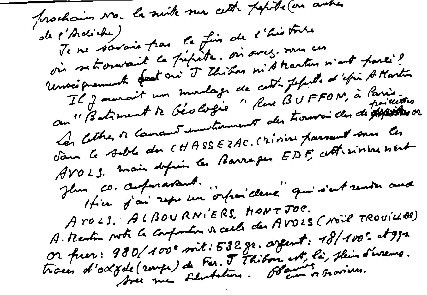 prochain No. la suite sur cette pépite (ou autres
de l'Ardèche)
Je ne savais pas la fin de l'histoire
où se trouvait la pépite. où avez-vous eu
renseignement ni J Thibon ni A Martin n'ont parlé?
Il y aurait un moulage de cette pépite d'après A Martin
au "Batiment de Géologie" Rue BUFFON, à Paris.
Les lettres de des trouvailles de paillettes or
dans le sable du CHASSEZAC. (rivière passant sous les
AVOLS. mais depuis les Barrages EDF, cette rivière n'est
plus co. auparavant.
Hier j'ai reçu un "orpailleur" qui s'est rendu aux
AVOLS. ALBOURNIERS, MONTJOC.
A. Martin note la composition de celle des AVOLS (NOËL TROUILLAS)
or pur: 980/100° soit: 532 gr. argent: 18/100°
traces d'oxyde (rouge) de Fer. J Thibon est, là, plein d'erreurs.
Avec mes Salutations.